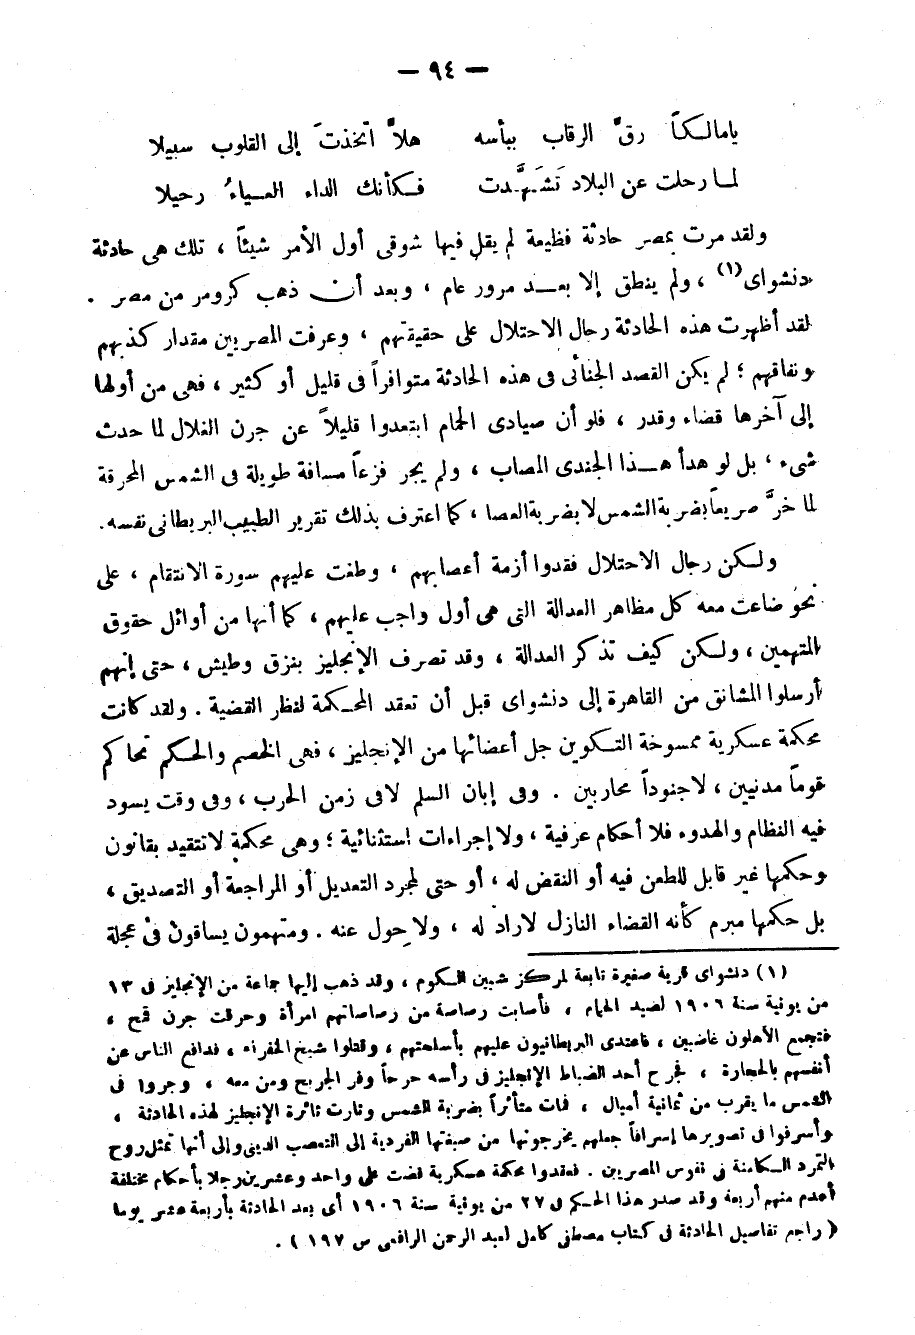 — ٩٤ —
يا مالكاً رقَّ الرقاب ببأسه هلاَّ اتخذتَ إلى القلوب سبيلا
لما رحلت عن البلاد تَشَهَّدت فكأنك الداء العياءُ رحيلا
ولقد مرت بمصر حادثة فظيعة لم يقل فيها شوقى أول الأمر شيئاً ، تلك هى حادثة
دنشواى (١) ، ولم ينطق إلا بعد مرور عام ، وبعد أن ذهب كرومر من مصر .
لقد أظهرت هذه الحادثة رجال الاحتلال على حقيقتهم ، وعرفت المصريين مقدار كذبهم
ونفاقهم ؛ لم يكن القصد الجنائى فى هذه الحادثة متوافراً فى قليل أو كثير ، فهى من أولها
إلى آخرها قضاء وقدر ، فلو أن صيادى الحمام ابتعدوا قليلاً عن جرن الغلال لما حدث
شىء ، بل لو هدأ هذا الجندى المصاب ، ولم يجر فزعاً مسافة طويلة فى الشمس المحرقة
لما خرَّ صريعاً بضربة الشمس لا بضربة العصا ، كما اعترف بذلك تقرير الطبيب البريطانى نفسه.
ولكن رجال الاحتلال فقدوا أزمة أعصابهم ، وطغت عليهم سورة الانتقام ، على
نحو ضاعت معه كل مظاهر العدالة التى هى أول واجب عليهم ، كما أنها من أوائل حقوق
المتهمين ، ولكن كيف تذكر العدالة ، وقد تصرف الإنجليز بنزق وطيش ، حتى إنهم
أرسلوا المشانق من القاهرة إلى دنشواى قبل أن تعقد المحكمة لنظر القضية . ولقد كانت
محكمة عسكرية ممسوخة التكوين جل أعضائها من الإنجليز ، فهى الخصم والحكم تحاكم
قوماً مدنيين ، لا جنوداً محاربين . وفى إبان السلم لا فى زمن الحرب ، وفى وقت يسود
فيه النظام والهدوء فلا أحكام عرفية ، ولا إجراءات استثنائية ؛ وهى محكمة لا تتقيد بقانون
وحكمها غير قابل للطعن فيه أو النقض له ، أو حتى لمجرد التعديل أو المراجعة أو التصديق ،
بل حكمها مبرم كأنه القضاء النازل لا راد له ، ولا حول عنه . ومتهمون يساقون فى عجلة
(١) دنشواى قرية صغيرة تابعة لمركز شبين الكوم ، وقد ذهب إليها جماعة من الإنجليز فى ١٣
من يونية سنة ١٩٠٦ لصيد الحمام ، فأصابت رصاصة من رصاصاتهم امرأة وحرقت جرن قمح ،
فتجمع الأهلون غاضبين ، فاعتدى البريطانيون عليهم بأسلحتهم ، وقتلوا شيخ الخفراء ، فدافع الناس عن
أنفسهم بالحجارة ، فجرح أحد الضباط الإنجليز فى رأسه جرحاً وفر الجريح ومن معه ، وجروا فى
الشمس ما يقرب من ثمانية أميال ، فمات متأثراً بضربة الشمس وثارت ثائرة الإنجليز لهذه الحادثة ،
وأسرفوا فى تصويرها إسرافاً جعلهم يخرجونها من صبغتها الفردية إلى التعصب الدينى وإلى أنها تمثل روح
التمرد الكامنة فى نفوس المصريين . فعقدوا محكمة عسكرية قضت على واحد وعشرين رجلا بأحكام مختلفة
أعدم منهم أربعة وقد صدر هذا الحكم فى ٢٧ من يونية سنة ١٩٠٦ أى بعد الحادثة بأربعة عشر يوما
( راجع تفاصيل الحادثة فى كتاب مصطفى كامل لعبد الرحمن الرافعى ص ١٩٧ ) .